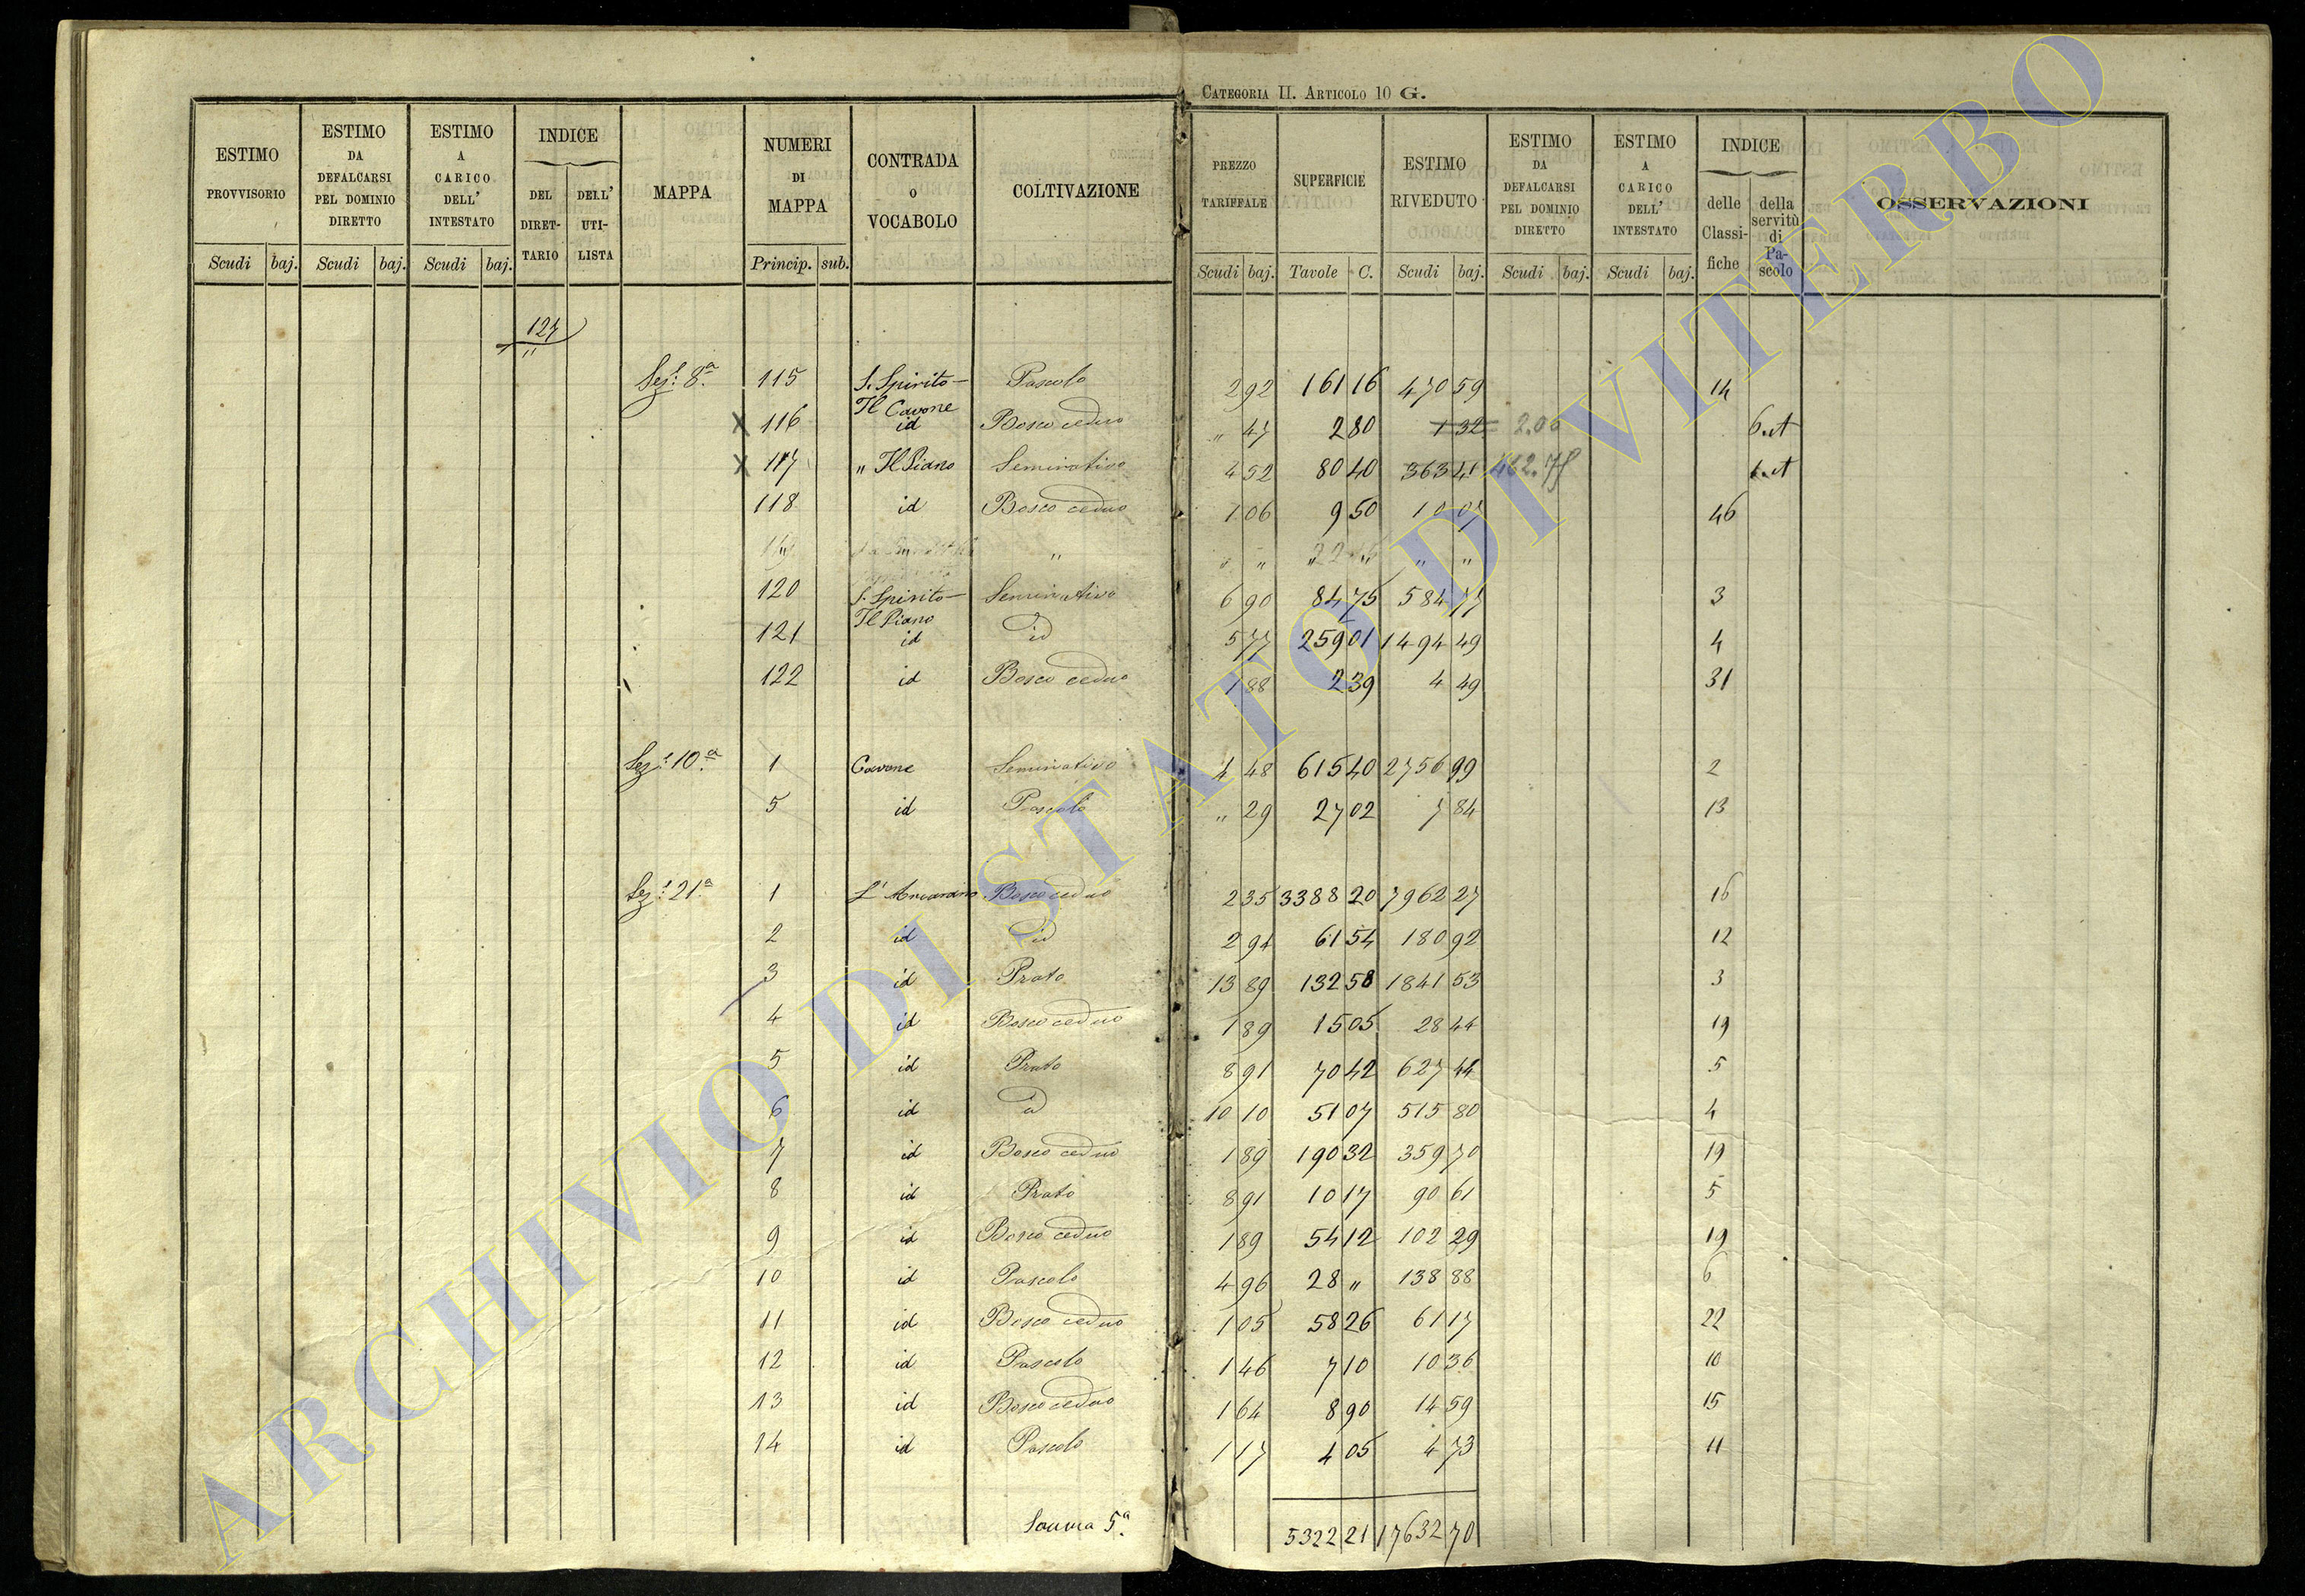 CATEGORIA II. ARTICOLO 10 G.
ESTIMO PROVVISORIO Scudi baj.
ESTIMO DA DEFALCARSI PEL DOMINIO DIRETTO Scudi baj.
ESTIMO A CARICO DELL' INTESTATO Scudi baj.
INDICE DEL DIRET-TARIO DELL' UTI-LISTA
MAPPA
NUMERI DI MAPPA Princip. sub.
CONTRADA O VOCABOLO
COLTIVAZIONE
PREZZO TARIFFALE Scudi baj.
SUPERFICIE Tavole C.
ESTIMO RIVEDUTO Scudi baj.
ESTIMO DA DEFALCARSI PEL DOMINIO DIRETTO Scudi baj.
ESTIMO A CARICO DELL' INTESTATO Scudi baj.
INDICE delle Classi-fiche della servitù di Pa-scolo
OSSERVAZIONI
127
"
Sez.e 8.a 115 S. Spirito - Il Cavone Pascolo 2 92 161 16 470 59 14
X 116 id Bosco ceduo " 47 2 80 1 32 6.A
X 117 " Il Piano Seminativo 4 52 80 40 363 41 A
118 id Bosco ceduo 1 06 9 50 10 07 46
" " " " "
120 S. Spirito - Il Piano Seminativo 6 90 84 75 584 77 3
121 id id 5 77 259 01 1494 49 4
122 id Bosco ceduo 1 88 2 39 4 49 31
Sez.e 10.a 1 Cavone Seminativo 4 48 615 40 2756 99 2
5 id Pascolo " 29 27 02 7 84 13
Sez.e 21.a 1 Bosco ceduo 2 35 3388 20 7962 27 16
2 id id 2 94 61 54 180 92 12
3 id Prato 13 89 132 58 1841 53 3
4 id Bosco ceduo 1 89 15 05 28 44 19
5 id Prato 8 91 70 42 627 44 5
6 id id 10 10 51 07 515 80 4
7 id Bosco ceduo 1 89 190 32 359 70 19
8 id Prato 8 91 10 17 90 61 5
9 id Bosco ceduo 1 89 54 12 102 29 19
10 id Pascolo 4 96 28 " 138 88 6
11 id Bosco ceduo 1 05 58 26 61 17 22
12 id Pascolo 1 46 7 10 10 36 10
13 id Bosco ceduo 1 64 8 90 14 59 15
14 id Pascolo 1 17 4 05 4 73 11
Somma 5.a 5322 21 17632 70
ARCHIVIO DI STATO DI VITERBO